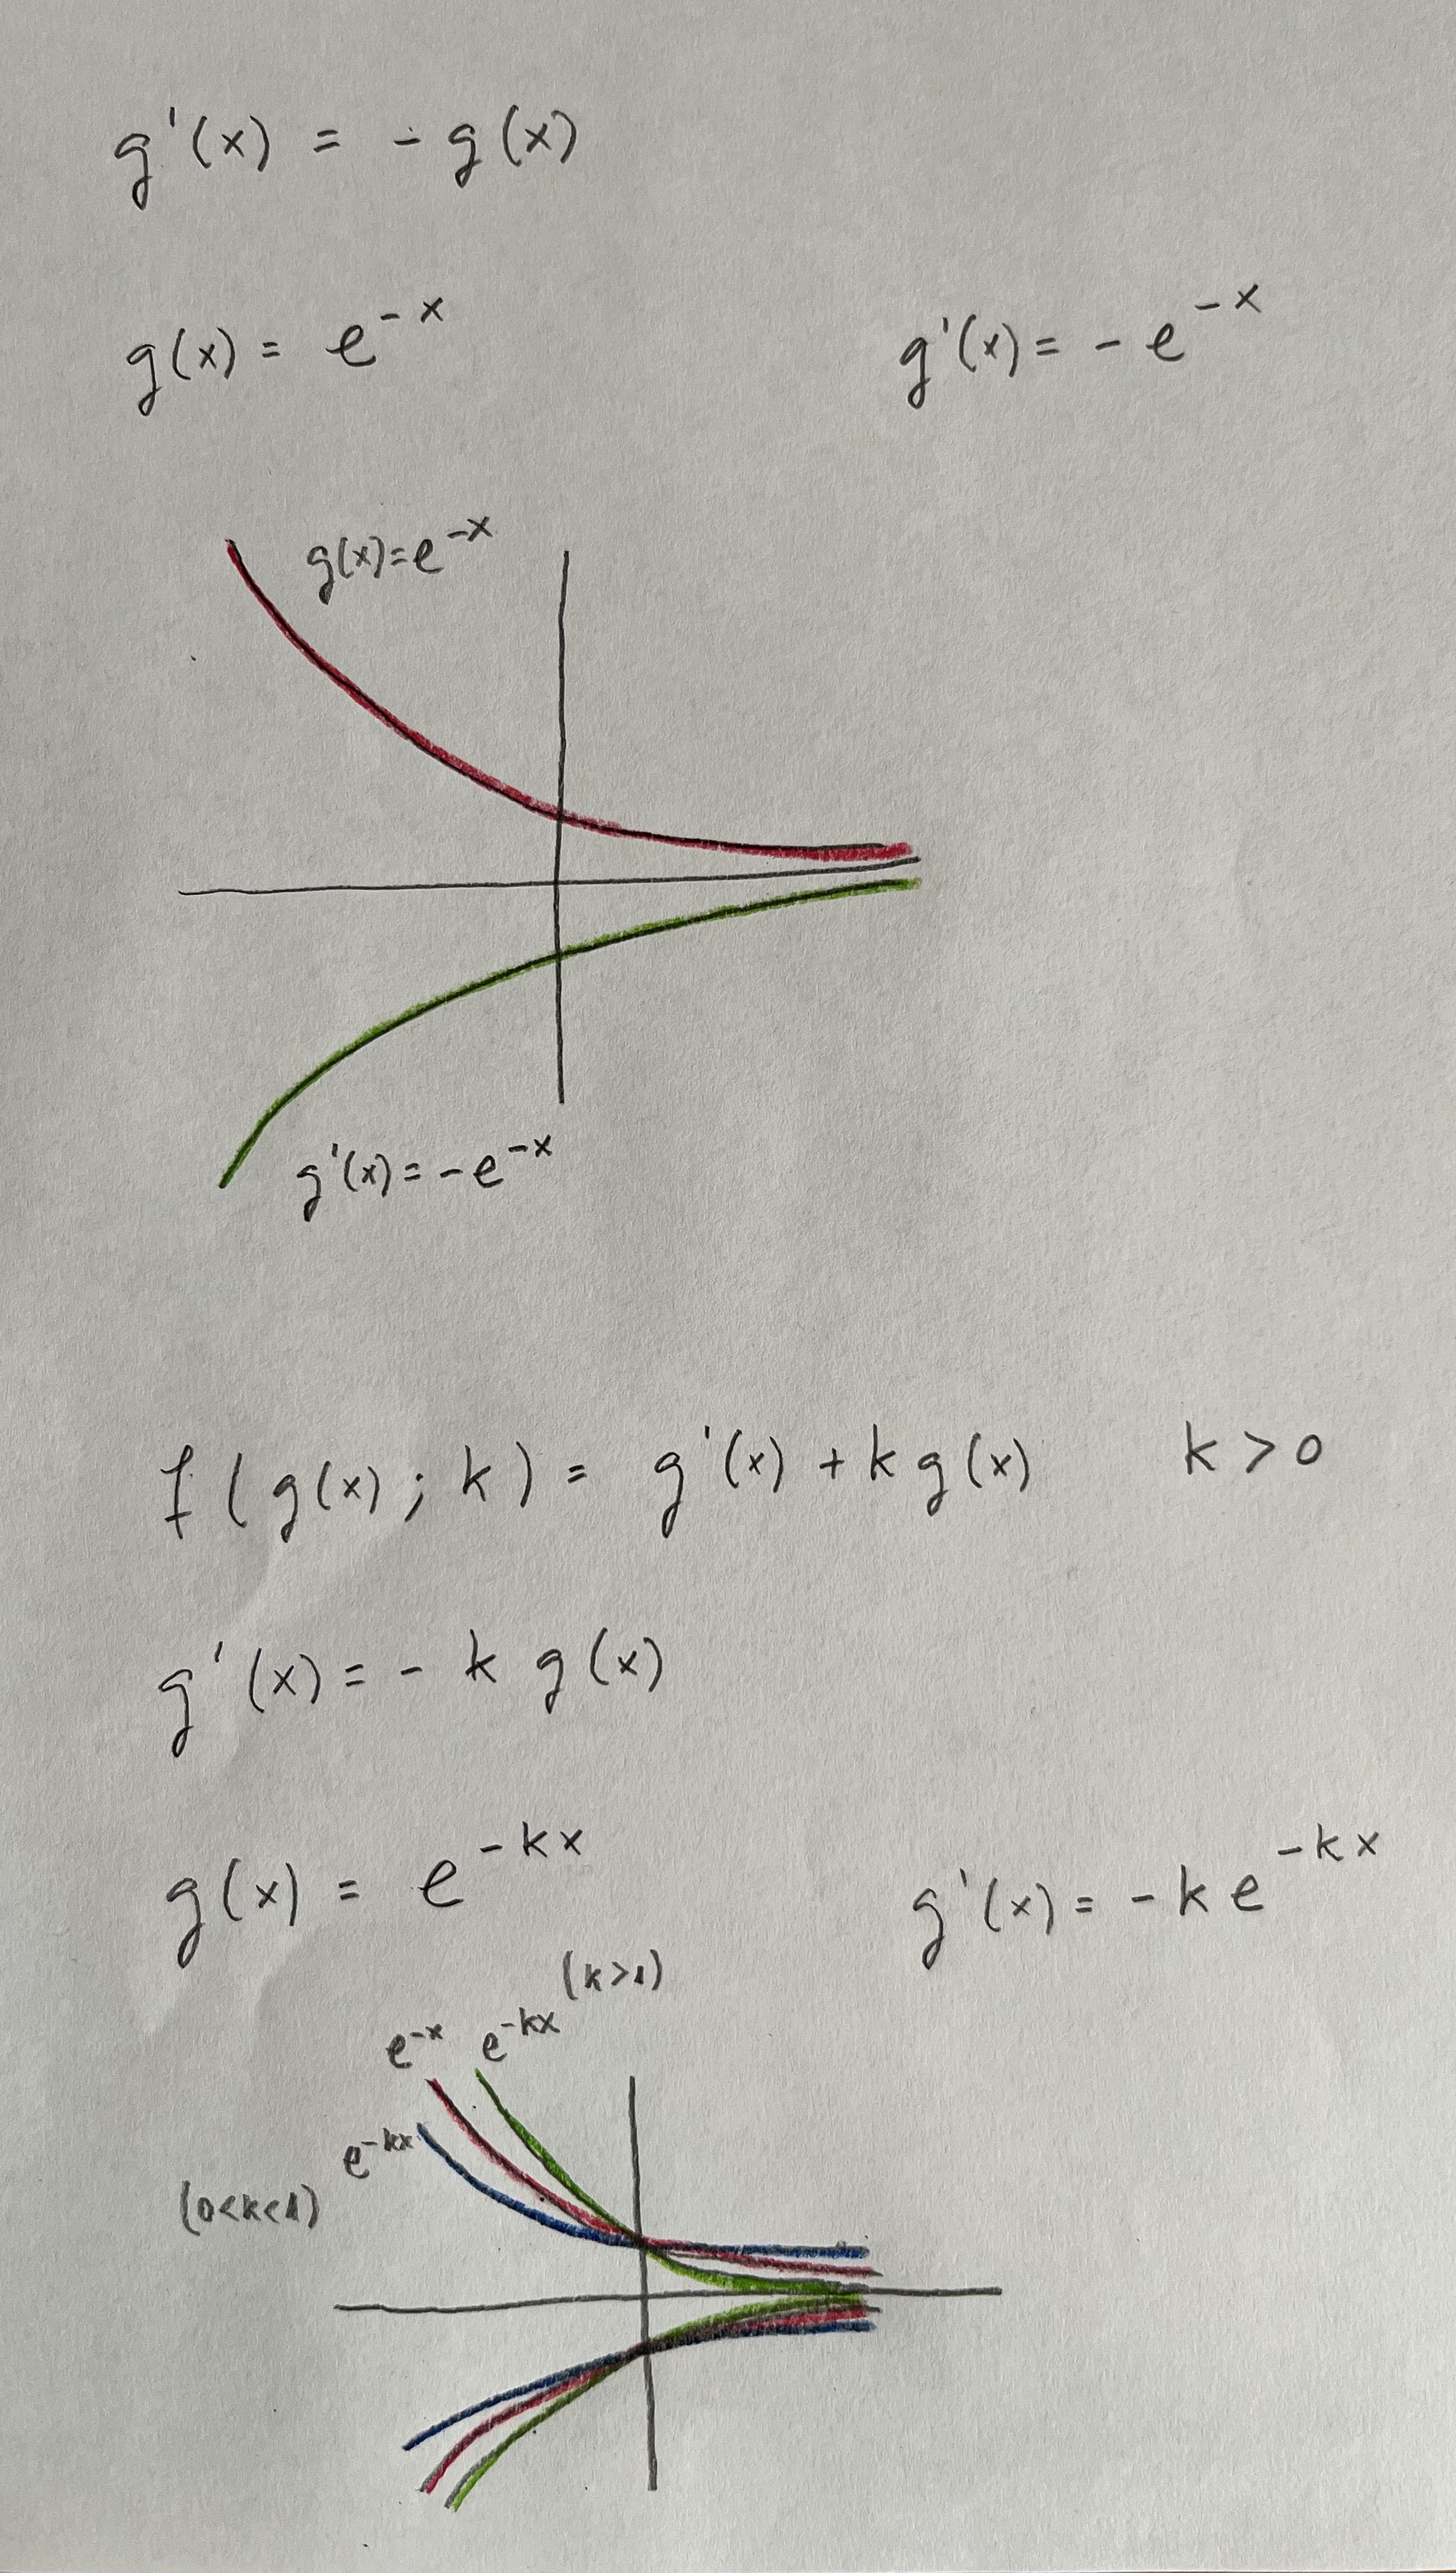 g'(x) = - g(x)
g(x) = e^{-x} g'(x) = - e^{-x}
g(x) = e^{-x}
g'(x) = - e^{-x}
f(g(x); k) = g'(x) + k g(x) k > 0
g'(x) = - k g(x)
g(x) = e^{-kx} g'(x) = - k e^{-kx}
(k>1)
e^{-x} e^{-kx}
e^{-kx}
(0<k<1)